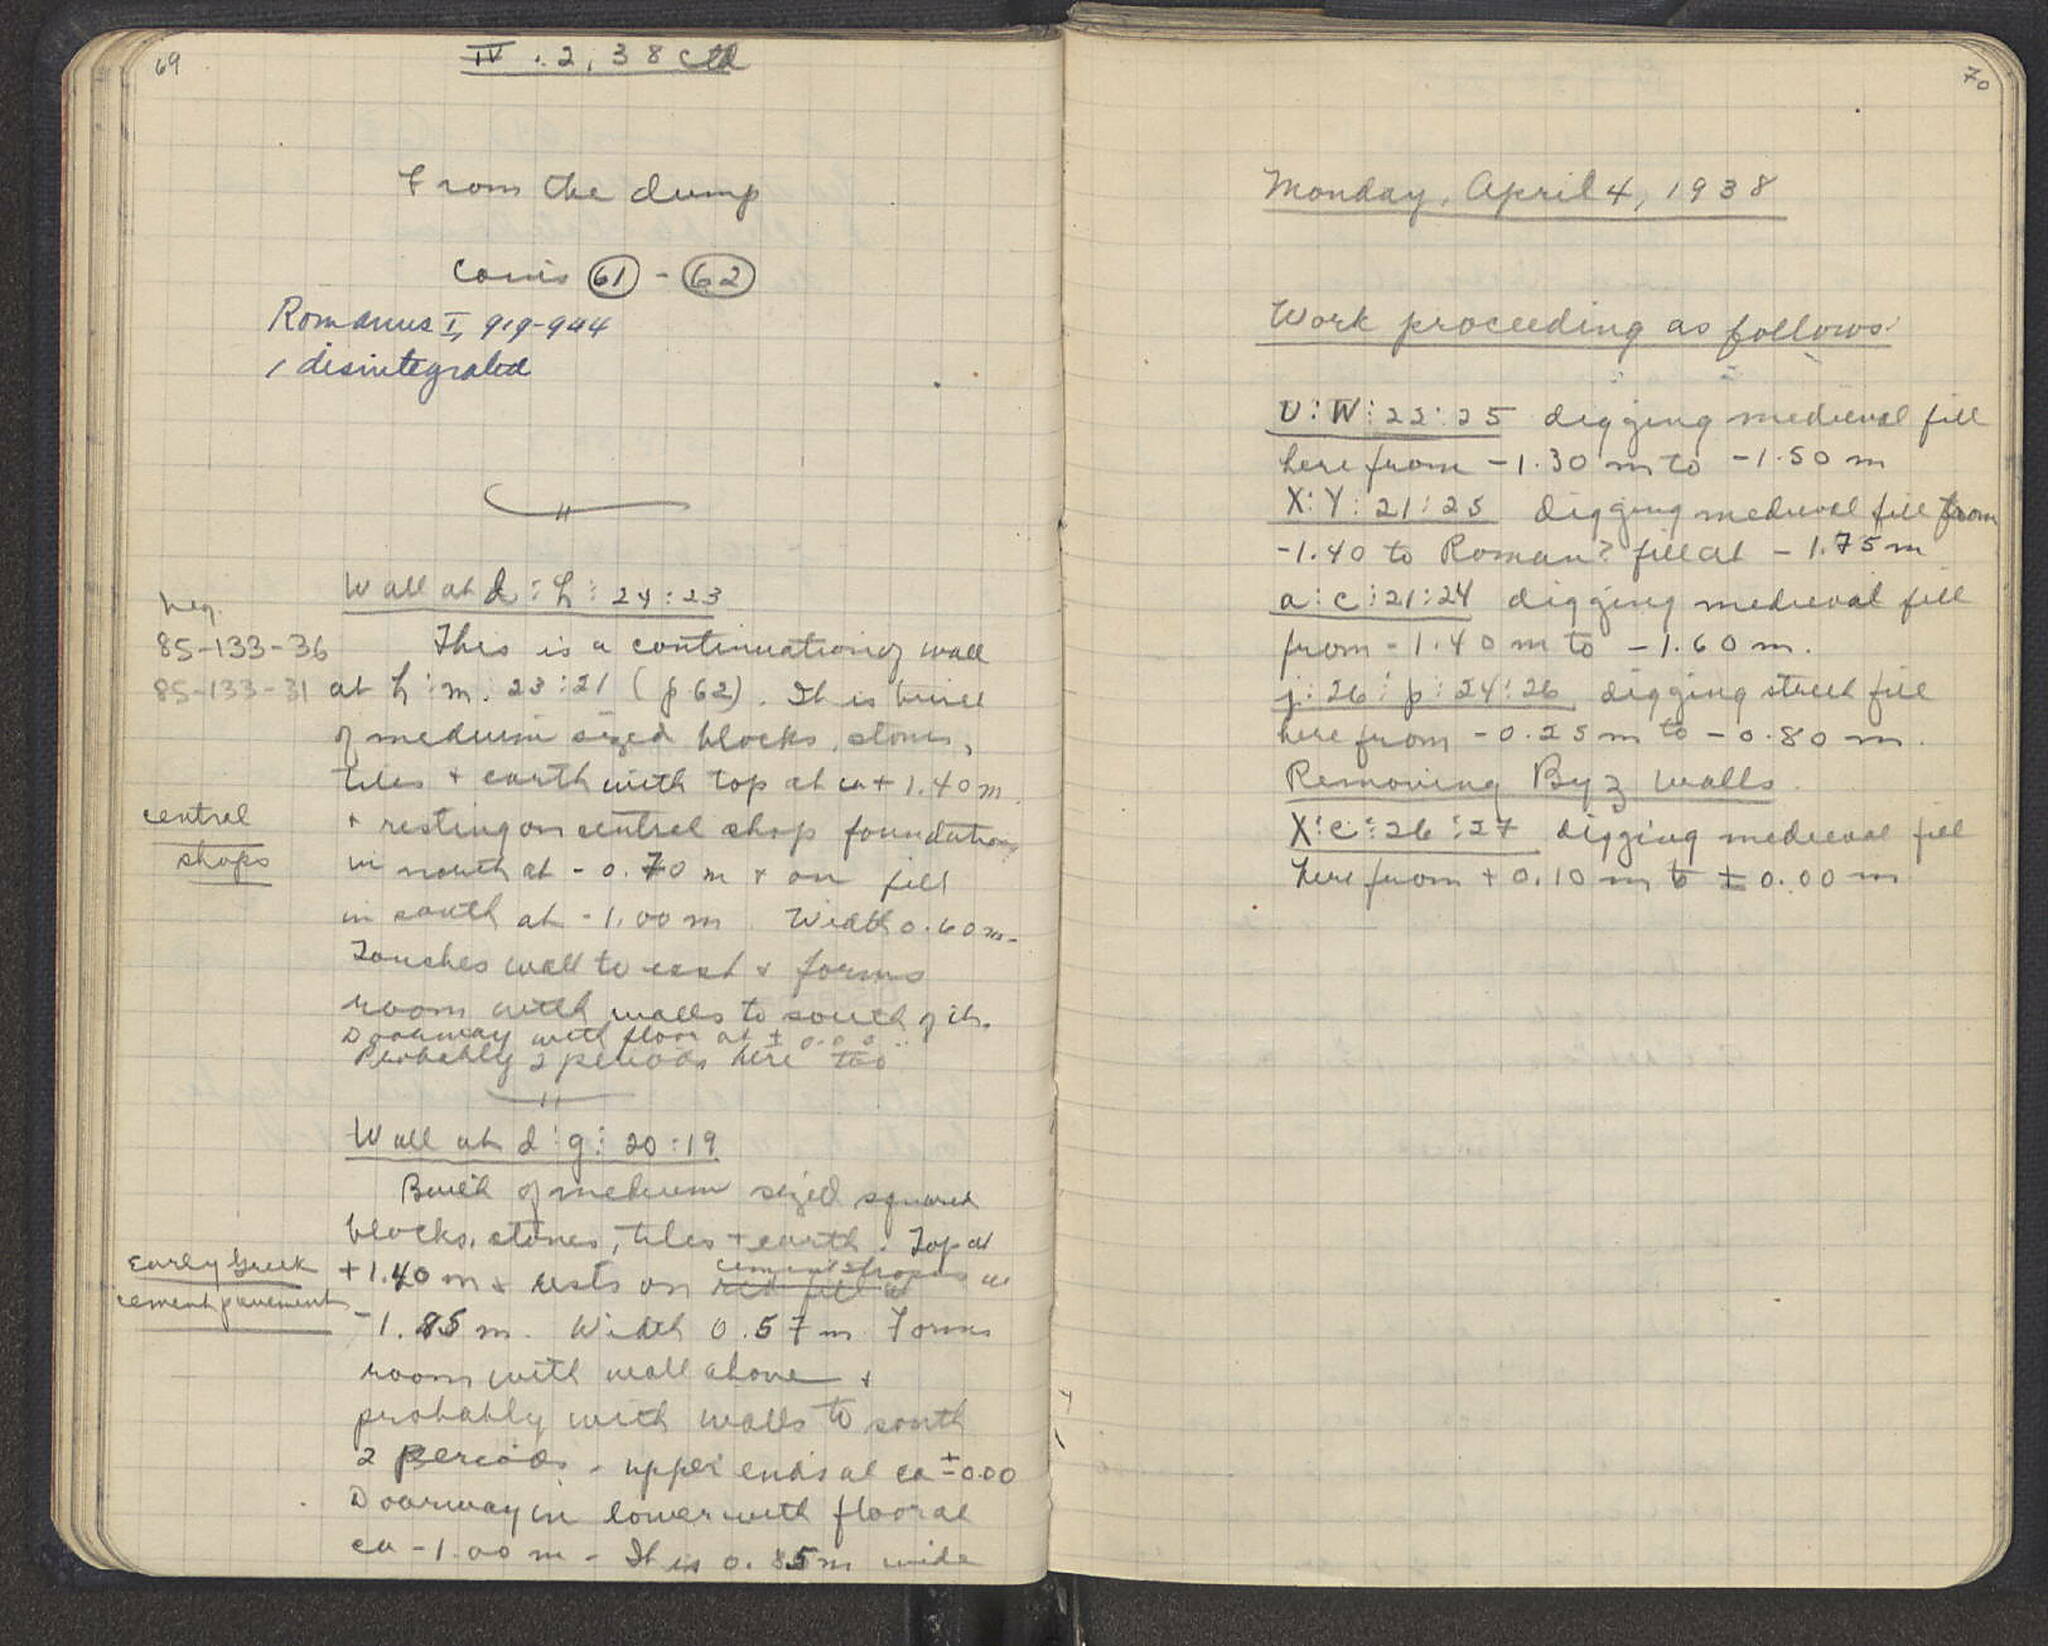 69
IV . 2, 38 ctd
From the dump
coins 61 - 62
Romanus I, 919-944
1 disintegrated
Wall at d : h : 24 : 23
neg.
85-133-36
85-133-31
This is a continuation of wall
at h : m : 23 : 21 (p 62). It is built
of medium sized blocks, stones,
tiles + earth with top at ca + 1.40 m
central
shops
+ resting on central shop foundations
in north at - 0.70 m + on fill
in south at - 1.00 m. Width 0.60 m.
Touches wall to east + forms
room with walls to south of it.
Doorway with floor at ± 0.00.
Probably 2 periods here too
Wall at d : g : 20 : 19
Built of medium sized squared
blocks, stones, tiles + earth. Top at
Early Greek
cement pavement
+ 1.40 m + rests on red fill at cement at
- 1.85 m. Width 0.57 m Forms
room with wall above +
probably with walls to south
2 periods - upper ends at ca ± 0.00
Doorway in lower with floor at
ca - 1.00 m - It is 0.85 m wide
70
Monday, April 4, 1938
Work proceeding as follows:
U : W : 22 : 25 digging medieval fill
here from - 1.30 m to - 1.50 m
X : Y : 21 : 25 digging medieval fill from
- 1.40 to Roman? fill at - 1.75 m
a : c : 21 : 24 digging medieval fill
from - 1.40 m to - 1.60 m.
j : 26 : p : 24 : 26 digging street fill
here from - 0.25 m to - 0.80 m.
Removing Byz walls.
X : c : 26 : 27 digging medieval fill
here from + 0.10 m to ± 0.00 m